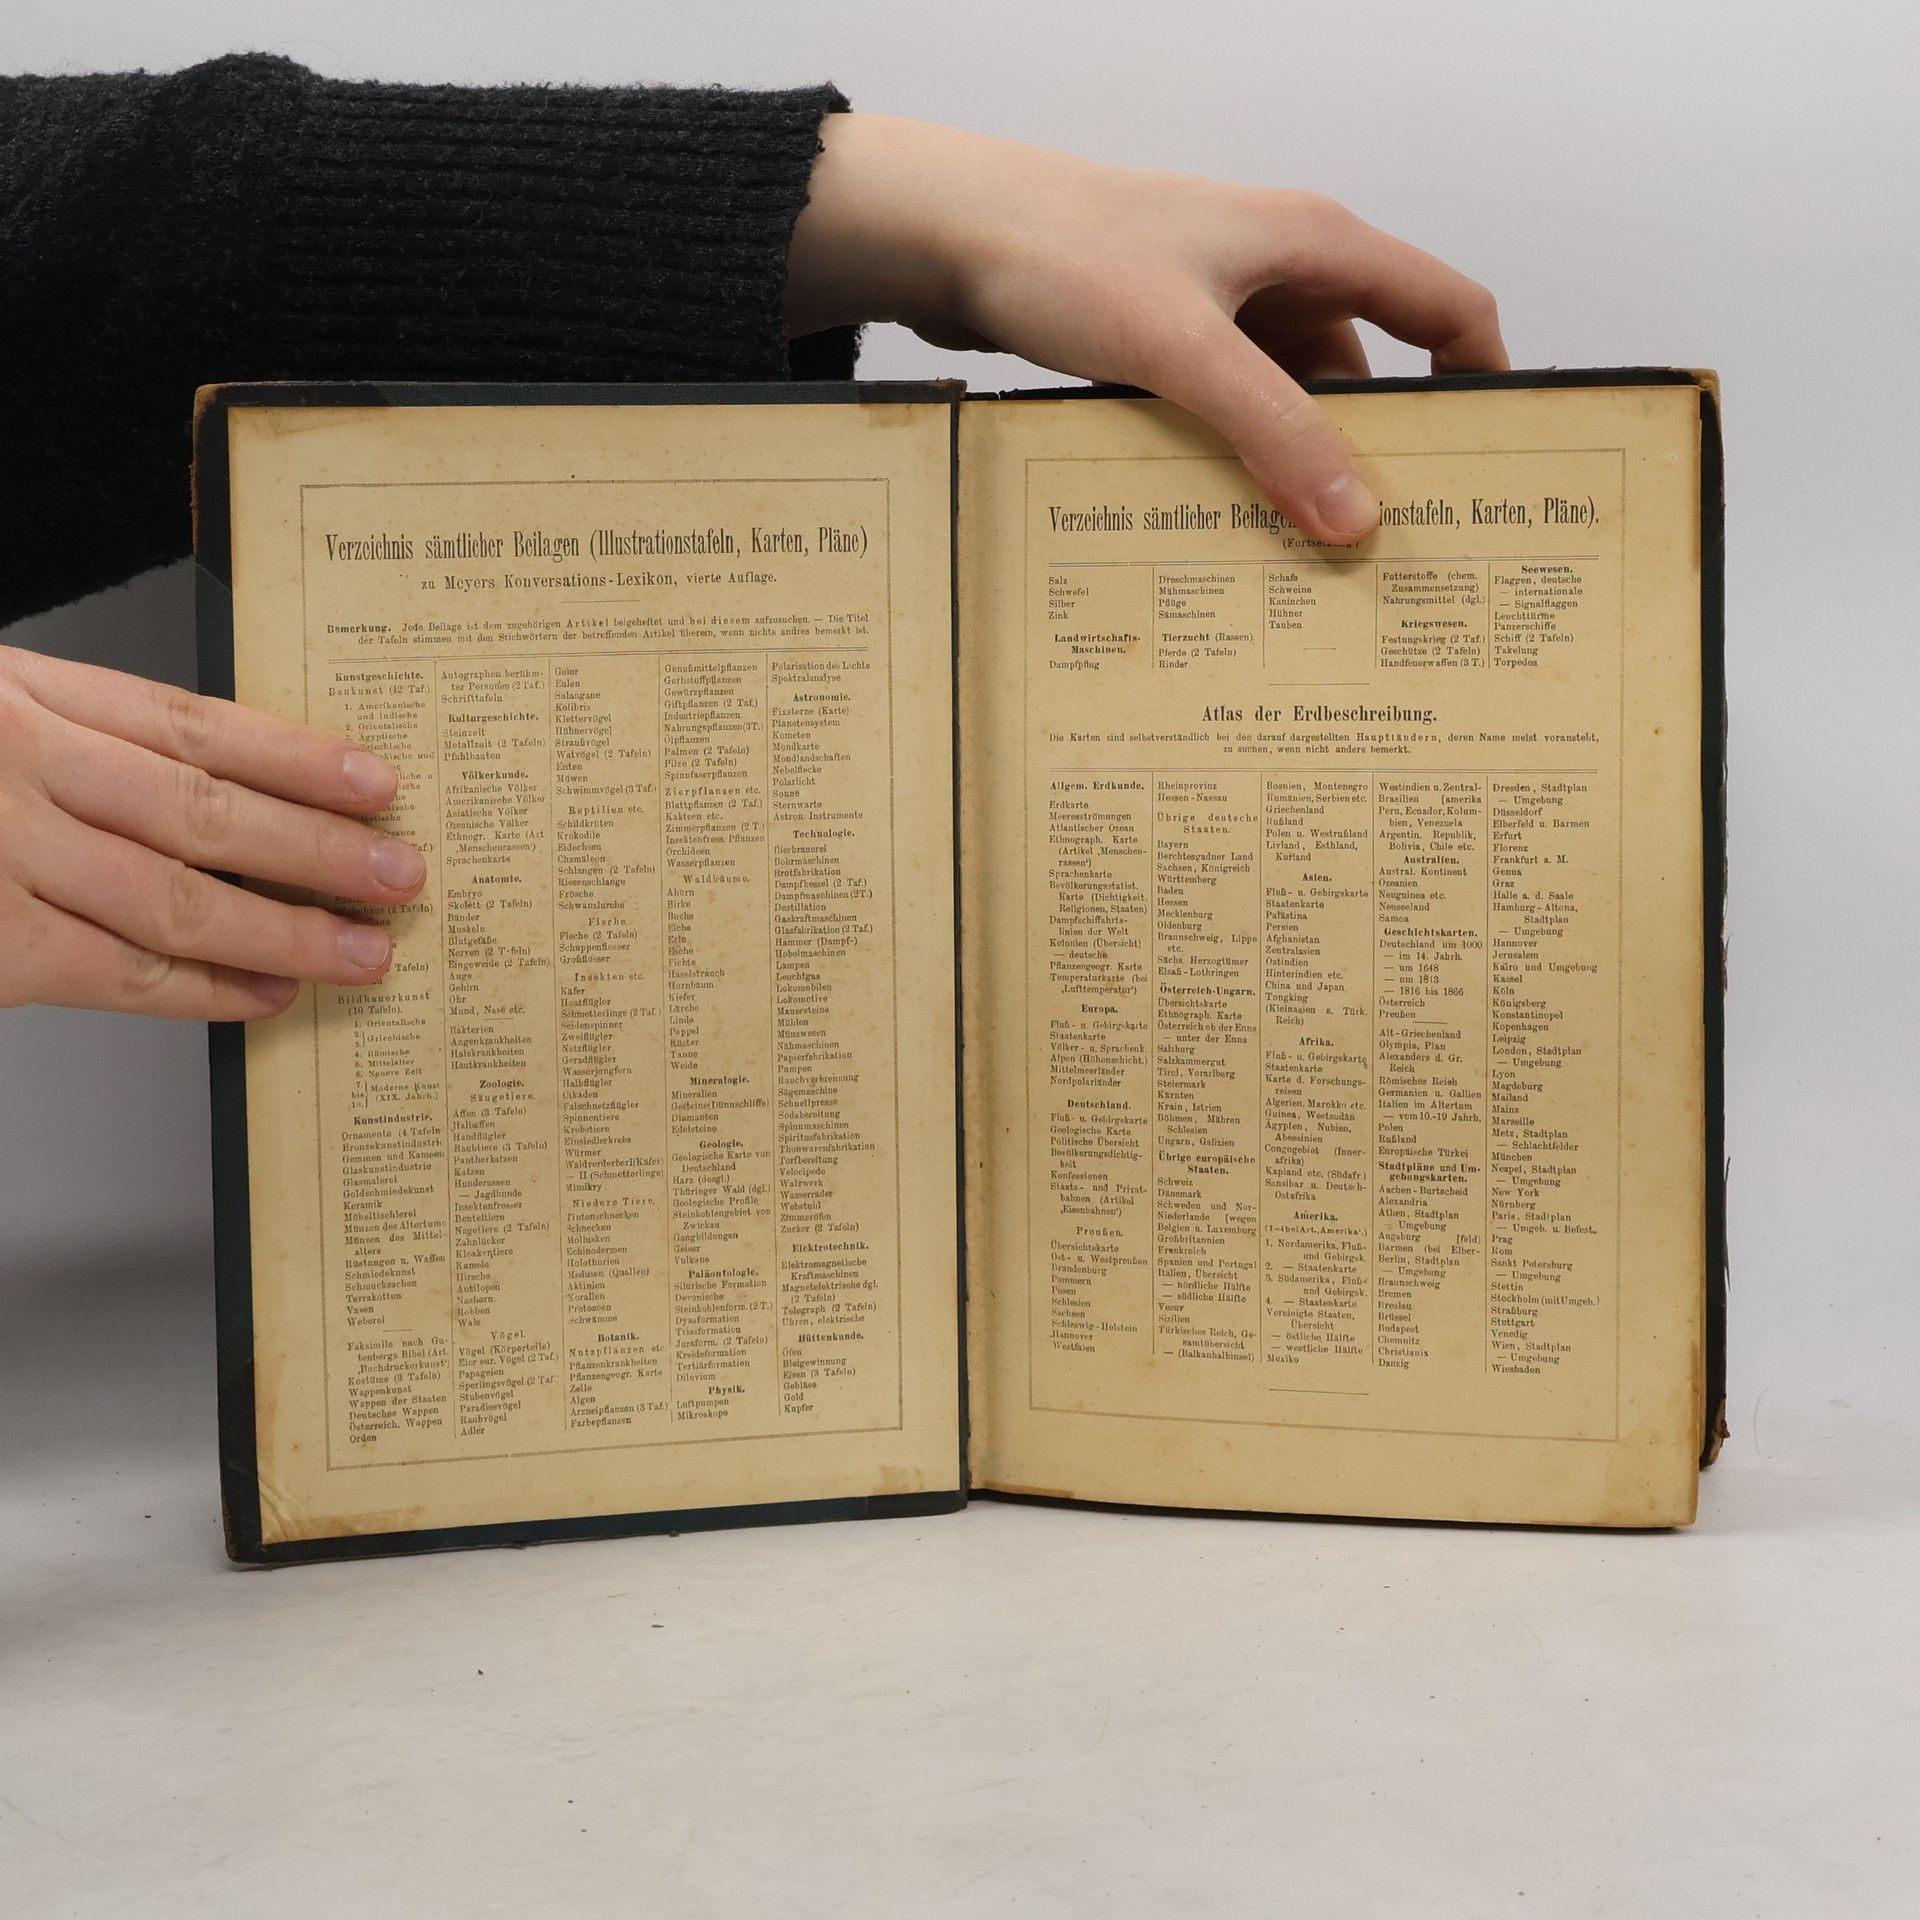 Verzeichnis sämtlicher Beilagen (Illustrationstafeln, Karten, Pläne)
zu Meyers Konversations-Lexikon, vierte Auflage.
Bemerkung. Jede Beilage ist dem zugehörigen Artikel beigeheftet und bei diesem aufzusuchen. — Die Titel
der Tafeln stimmen mit den Stichwörtern der betreffenden Artikel überein, wenn nichts andres bemerkt ist.
Kunstgeschichte.
Baukunst (12 Taf.)
1. Amerikanische
und indische
2. Orientalische
3. Ägyptische
Wohnhaus (2 Tafeln)
Tafeln)
Bildhauerkunst
(10 Tafeln).
1. Orientalische
2.
3. Griechische
4. Römische
5. Mittelalter
6. Neuere Zeit
7.
bis Moderne Kunst
10. (XIX. Jahrh.)
Kunstindustrie.
Ornamente (4 Tafeln
Bronzekunstindustrie
Gemmen und Kameen
Glaskunstindustrie
Glasmalerei
Goldschmiedekunst
Keramik
Möbeltischlerei
Münzen des Altertums
Münzen des Mittel-
alters
Rüstungen u. Waffen
Schmiedekunst
Schmucksachen
Terrakotten
Vasen
Weberei
Faksimile nach Gu-
tenbergs Bibel (Art.
‚Buchdruckerkunst‘)
Kostüme (3 Tafeln)
Wappenkunst
Wappen der Staaten
Deutsches Wappen
Österreich. Wappen
Orden
Autographen berühm-
ter Personen (2 Taf.)
Schrifttafeln
Kulturgeschichte.
Steinzeit
Metallzeit (2 Tafeln)
Pfahlbauten
Völkerkunde.
Afrikanische Völker
Amerikanische Völker
Asiatische Völker
Ozeanische Völker
Ethnogr. Karte (Art.
‚Menschenrassen‘)
Sprachenkarte
Anatomie.
Embryo
Skelett (2 Tafeln)
Bänder
Muskeln
Blutgefäße
Nerven (2 Tafeln)
Eingeweide (2 Tafeln)
Auge
Gehirn
Ohr
Mund, Nase etc.
Bakterien
Augenkrankheiten
Halskrankheiten
Hautkrankheiten
Zoologie.
Säugetiere.
Affen (3 Tafeln)
Halbaffen
Handflügler
Raubtiere (3 Tafeln)
Pantherkatzen
Katzen
Hunderassen
— Jagdhunde
Insektenfresser
Beuteltiere
Nagetiere (2 Tafeln)
Zahnlücker
Kloakentiere
Kamele
Hirsche
Antilopen
Nashorn
Robben
Wale
Vögel.
Vögel (Körperteile)
Eier eur. Vögel (2 Taf.)
Papageien
Sperlingsvögel (2 Taf.
Stubenvögel
Paradiesvögel
Raubvögel
Adler
Geier
Eulen
Salangane
Kolibris
Klettervögel
Hühnervögel
Straußvögel
Watvögel (2 Tafeln)
Enten
Möwen
Schwimmvögel (3 Taf.)
Reptilien etc.
Schildkröten
Krokodile
Eidechsen
Chamäleon
Schlangen (2 Tafeln)
Riesenschlange
Frösche
Schwanzlurche
Fische.
Fische (2 Tafeln)
Schuppenflosser
Großflosser
Insekten etc.
Käfer
Hautflügler
Schmetterlinge (2 Taf.)
Seidenspinner
Zweiflügler
Netzflügler
Geradflügler
Wasserjungfern
Halbflügler
Cikaden
Falschnetzflügler
Spinnentiere
Krebstiere
Einsiedlerkrebs
Würmer
Waldverderber I (Käfer)
— II (Schmetterlinge)
Mimikry
Niedere Tiere.
Tintenschnecken
Schnecken
Mollusken
Echinodermen
Holothurien
Medusen (Quallen)
Aktinien
Korallen
Protozoen
Schwämme
Botanik.
Nutzpflanzen etc.
Pflanzenkrankheiten
Pflanzengeogr. Karte
Zelle
Algen
Arzneipflanzen (3 Taf.)
Farbepflanzen
Genußmittelpflanzen
Gerbstoffpflanzen
Gewürzpflanzen
Giftpflanzen (2 Taf.)
Industriepflanzen
Nahrungspflanzen (3T.)
Ölpflanzen
Palmen (2 Tafeln)
Pilze (2 Tafeln)
Spinnfaserpflanzen
Zierpflanzen etc.
Blattpflanzen (2 Taf.)
Kakteen etc.
Zimmerpflanzen (2 T.)
Insektenfress. Pflanzen
Orchideen
Wasserpflanzen
Waldbäume.
Ahorn
Birke
Buche
Eiche
Erle
Esche
Fichte
Haselstrauch
Hornbaum
Kiefer
Lärche
Linde
Pappel
Rüster
Tanne
Weide
Mineralogie.
Mineralien
Gesteine (Dünnschliffe)
Diamanten
Edelsteine
Geologie.
Geologische Karte von
Deutschland
Harz (desgl.)
Thüringer Wald (dgl.)
Geologische Profile
Steinkohlengebiet von
Zwickau
Gangbildungen
Geiser
Vulkane
Paläontologie.
Silurische Formation
Devonische —
Steinkohlenform. (2 T.)
Dyasformation
Triasformation
Juraform. (2 Tafeln)
Kreideformation
Tertiärformation
Diluvium
Physik.
Luftpumpen
Mikroskope
Polarisation des Lichts
Spektralanalyse
Astronomie.
Fixsterne (Karte)
Planetensystem
Kometen
Mondkarte
Mondlandschaften
Nebelflecke
Polarlicht
Sonne
Sternwarte
Astron. Instrumente
Technologie.
Bierbrauerei
Bohrmaschinen
Brotfabrikation
Dampfkessel (2 Taf.)
Dampfmaschinen (2T.)
Destillation
Gaskraftmaschinen
Glasfabrikation (2 Taf.)
Hammer (Dampf-)
Hobelmaschinen
Lampen
Leuchtgas
Lokomobilen
Lokomotive
Mauersteine
Mühlen
Münzwesen
Nähmaschinen
Papierfabrikation
Pumpen
Rauchverbrennung
Sägemaschine
Schnellpresse
Sodabereitung
Spinnmaschinen
Spiritusfabrikation
Thonwarenfabrikation
Torfbereitung
Velocipede
Walzwerk
Wasserräder
Webstuhl
Zimmeröfen
Zucker (2 Tafeln)
Elektrotechnik.
Elektromagnetische
Kraftmaschinen
Magnetelektrische dgl.
(2 Tafeln)
Telegraph (2 Tafeln)
Uhren, elektrische
Hüttenkunde.
Öfen
Bleigewinnung
Eisen (3 Tafeln)
Gebläse
Gold
Kupfer
Verzeichnis sämtlicher Beilagen ionstafeln, Karten, Pläne).
(Fortsetzung.)
Salz
Schwefel
Silber
Zink
Landwirtschafts-
Maschinen.
Dampfpflug
Dreschmaschinen
Mähmaschinen
Pflüge
Sämaschinen
Tierzucht (Rassen).
Pferde (2 Tafeln)
Rinder
Schafe
Schweine
Kaninchen
Hühner
Tauben
Futterstoffe (chem.
Zusammensetzung)
Nahrungsmittel (dgl.)
Kriegswesen.
Festungskrieg (2 Taf.)
Geschütze (2 Tafeln)
Handfeuerwaffen (3 T.)
Seewesen.
Flaggen, deutsche
— internationale
— Signalflaggen
Leuchttürme
Panzerschiffe
Schiff (2 Tafeln)
Takelung
Torpedos
Atlas der Erdbeschreibung.
Die Karten sind selbstverständlich bei den darauf dargestellten Hauptländern, deren Name meist voransteht,
zu suchen, wenn nicht anders bemerkt.
Allgem. Erdkunde.
Erdkarte
Meeresströmungen
Atlantischer Ozean
Ethnograph. Karte
(Artikel ‚Menschen-
rassen‘)
Sprachenkarte
Bevölkerungsstatist.
Karte (Dichtigkeit,
Religionen, Staaten)
Dampfschiffahrts-
linien der Welt
Kolonien (Übersicht)
— deutsche
Pflanzengeogr. Karte
Temperaturkarte (bei
‚Lufttemperatur‘)
Europa.
Fluß- u. Gebirgskarte
Staatenkarte
Völker- u. Sprachenk.
Alpen (Höhenschicht.)
Mittelmeerländer
Nordpolarländer
Deutschland.
Fluß- u. Gebirgskarte
Geologische Karte
Politische Übersicht
Bevölkerungsdichtig-
keit
Konfessionen
Staats- und Privat-
bahnen (Artikel
‚Eisenbahnen‘)
Preußen.
Übersichtskarte
Ost- u. Westpreußen
Brandenburg
Pommern
Posen
Schlesien
Sachsen
Schleswig-Holstein
Hannover
Westfalen
Rheinprovinz
Hessen-Nassau
Übrige deutsche
Staaten.
Bayern
Berchtesgadner Land
Sachsen, Königreich
Württemberg
Baden
Hessen
Mecklenburg
Oldenburg
Braunschweig, Lippe
etc.
Sächs. Herzogtümer
Elsaß-Lothringen
Österreich-Ungarn.
Übersichtskarte
Ethnograph. Karte
Österreich ob der Enns
— unter der Enns
Salzburg
Salzkammergut
Tirol, Vorarlberg
Steiermark
Kärnten
Krain, Istrien
Böhmen, Mähren
Schlesien
Ungarn, Galizien
Übrige europäische
Staaten.
Schweiz
Dänemark
Schweden und Nor-
Niederlande [wegen
Belgien u. Luxemburg
Großbritannien
Frankreich
Spanien und Portugal
Italien, Übersicht
— nördliche Hälfte
— südliche Hälfte
Vesuv
Sizilien
Türkisches Reich, Ge-
samtübersicht
— (Balkanhalbinsel)
Bosnien, Montenegro
Rumänien, Serbien etc.
Griechenland
Rußland
Polen u. Westrußland
Livland, Esthland,
Kurland
Asien.
Fluß- u. Gebirgskarte
Staatenkarte
Palästina
Persien
Afghanistan
Zentralasien
Ostindien
Hinterindien etc.
China und Japan
Tongking
(Kleinasien s. Türk.
Reich)
Afrika.
Fluß- u. Gebirgskarte
Staatenkarte
Karte d. Forschungs-
reisen
Algerien, Marokko etc.
Guinea, Westsudân
Ägypten, Nubien,
Abessinien
Congogebiet (Inner-
afrika)
Kapland etc. (Südafr.)
Sansibar u. Deutsch-
Ostafrika
Amerika.
(1–4 bei Art. ‚Amerika‘.)
1. Nordamerika, Fluß-
und Gebirgsk.
2. — Staatenkarte
3. Südamerika, Fluß-
und Gebirgsk.
4. — Staatenkarte
Vereinigte Staaten,
Übersicht
— östliche Hälfte
— westliche Hälfte
Mexiko
Westindien u. Zentral-
Brasilien [amerika
Peru, Ecuador, Kolum-
bien, Venezuela
Argentin. Republik,
Bolivia, Chile etc.
Australien.
Austral. Kontinent
Ozeanien
Neuguinea etc.
Neuseeland
Samoa
Geschichtskarten.
Deutschland um 1000
— im 14. Jahrh.
— um 1648
— um 1813
— 1816 bis 1866
Österreich
Preußen
Alt-Griechenland
Olympia, Plan
Alexanders d. Gr.
Reich
Römisches Reich
Germanien u. Gallien
Italien im Altertum
— vom 10.-19 Jahrh.
Polen
Rußland
Europäische Türkei
Stadtpläne und Um-
gebungskarten.
Aachen-Burtscheid
Alexandria
Athen, Stadtplan
— Umgebung
Augsburg [feld)
Barmen (bei Elber-
Berlin, Stadtplan
— Umgebung
Braunschweig
Bremen
Breslau
Brüssel
Budapest
Chemnitz
Christiania
Danzig
Dresden, Stadtplan
— Umgebung
Düsseldorf
Elberfeld u. Barmen
Erfurt
Florenz
Frankfurt a. M.
Genua
Graz
Halle a. d. Saale
Hamburg-Altona,
Stadtplan
— Umgebung
Hannover
Jerusalem
Kairo und Umgebung
Kassel
Köln
Königsberg
Konstantinopel
Kopenhagen
Leipzig
London, Stadtplan
— Umgebung
Lyon
Magdeburg
Mailand
Mainz
Marseille
Metz, Stadtplan
— Schlachtfelder
München
Neapel, Stadtplan
— Umgebung
New York
Nürnberg
Paris, Stadtplan
— Umgeb. u. Befest.
Prag
Rom
Sankt Petersburg
— Umgebung
Stettin
Stockholm (mit Umgeb.)
Straßburg
Stuttgart
Venedig
Wien, Stadtplan
— Umgebung
Wiesbaden